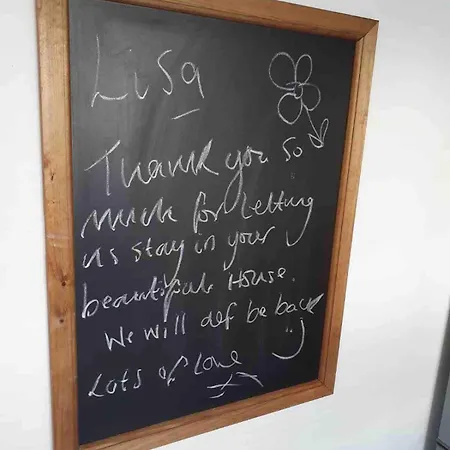 Lisa
Thank you so
much for letting
us stay in your
beautiful House.
We will def be back
Lots of Love